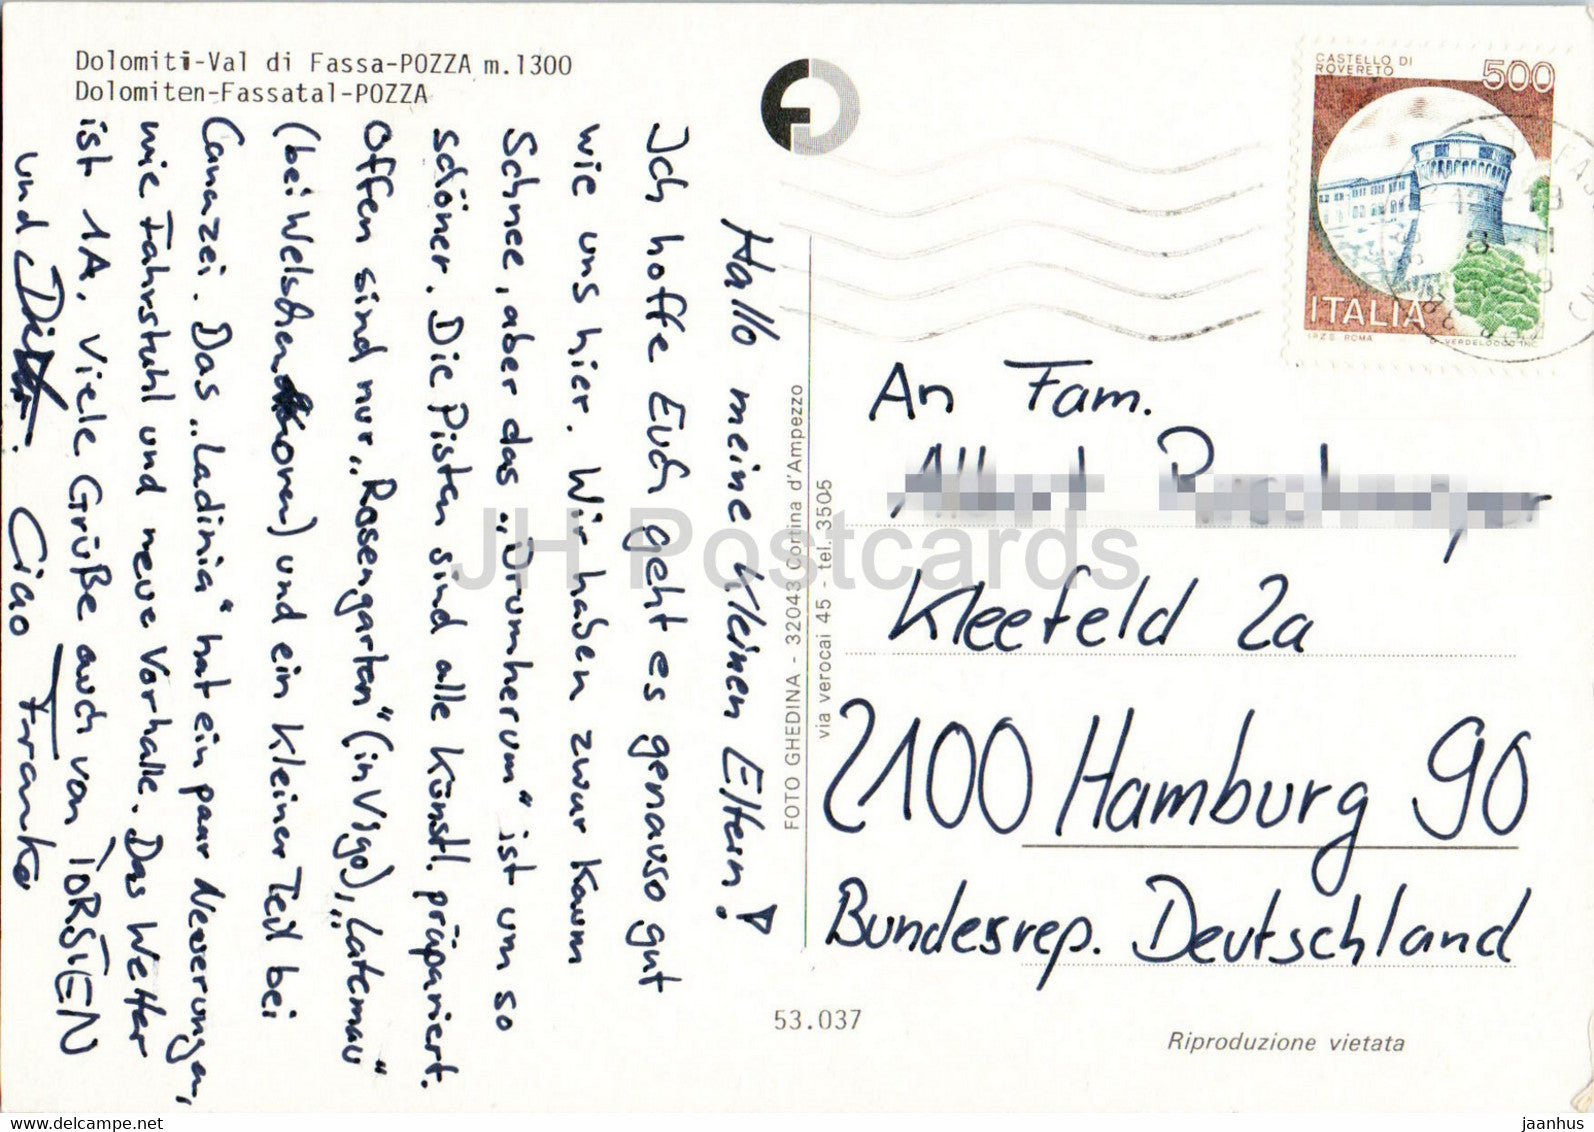 Dolomiti-Val di Fassa-POZZA m.1300
Dolomiten-Fassatal-POZZA
Hallo meine kleinen Eltern!
Ich hoffe Euch geht es genauso gut
wie uns hier. Wir haben zwar kaum
Schnee, aber das „Drumherum" ist um so
schöner. Die Pisten sind alle künstl. präpariert.
Offen sind nur „Rosengarten" (in Vigo), „Latemar"
(bei Welschenhoven) und ein kleiner Teil bei
Canazei. Das „Ladinia" hat ein paar Neuerungen,
wie Fahrstuhl und neue Vorhalle. Das Wetter
ist 1A. Viele Grüße auch von TORSTEN
und Ciao Franka
FOTO GHEDINA - 32043 Cortina d'Ampezzo
via verocai 45 - tel. 3505
CASTELLO DI
ROVERETO
500
ITALIA
I.P.Z.S. ROMA
An Fam.
Kleefeld 2a
2100 Hamburg 90
Bundesrep. Deutschland
53.037
Riproduzione vietata
JH Postcards
HIP POSTCARD
jaanhus